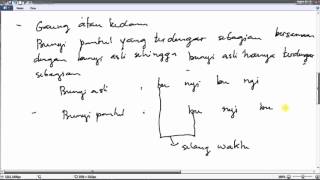 - Gaung atau kerdam
Bunyi pantul yang terdengar sebagian bersamaan
dengan bunyi asli sehingga bunyi asli hanya terdengar
sebagian
Bunyi asli : bu nyi bu nyi
- Bunyi pantul : bu nyi bu
selang waktu